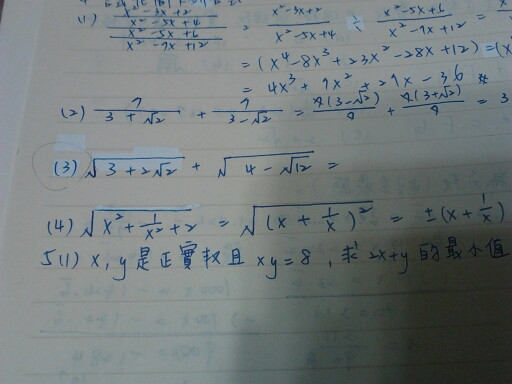 (1) x²-3x+2 / x²-5x+4 / x²-5x+6 / x²-7x+12 = x²-3x+2 / x²-5x+4 ÷ x²-5x+6 / x²-7x+12 =
= (x⁴-8x³+23x²-28x+12) =
= 4x³+9x²+27x-36 *
(2) 7/(3+√2) + 7/(3-√2) = 7(3-√2)/7 + 7(3+√2)/7 = 3
(3) √(3+2√2) + √(4-√12) =
(4) √(x²+1/x²+2) = √((x+1/x)²) = ±(x+1/x)
5.(1) x, y 是正實數且 xy=8, 求 2x+y 的最小值